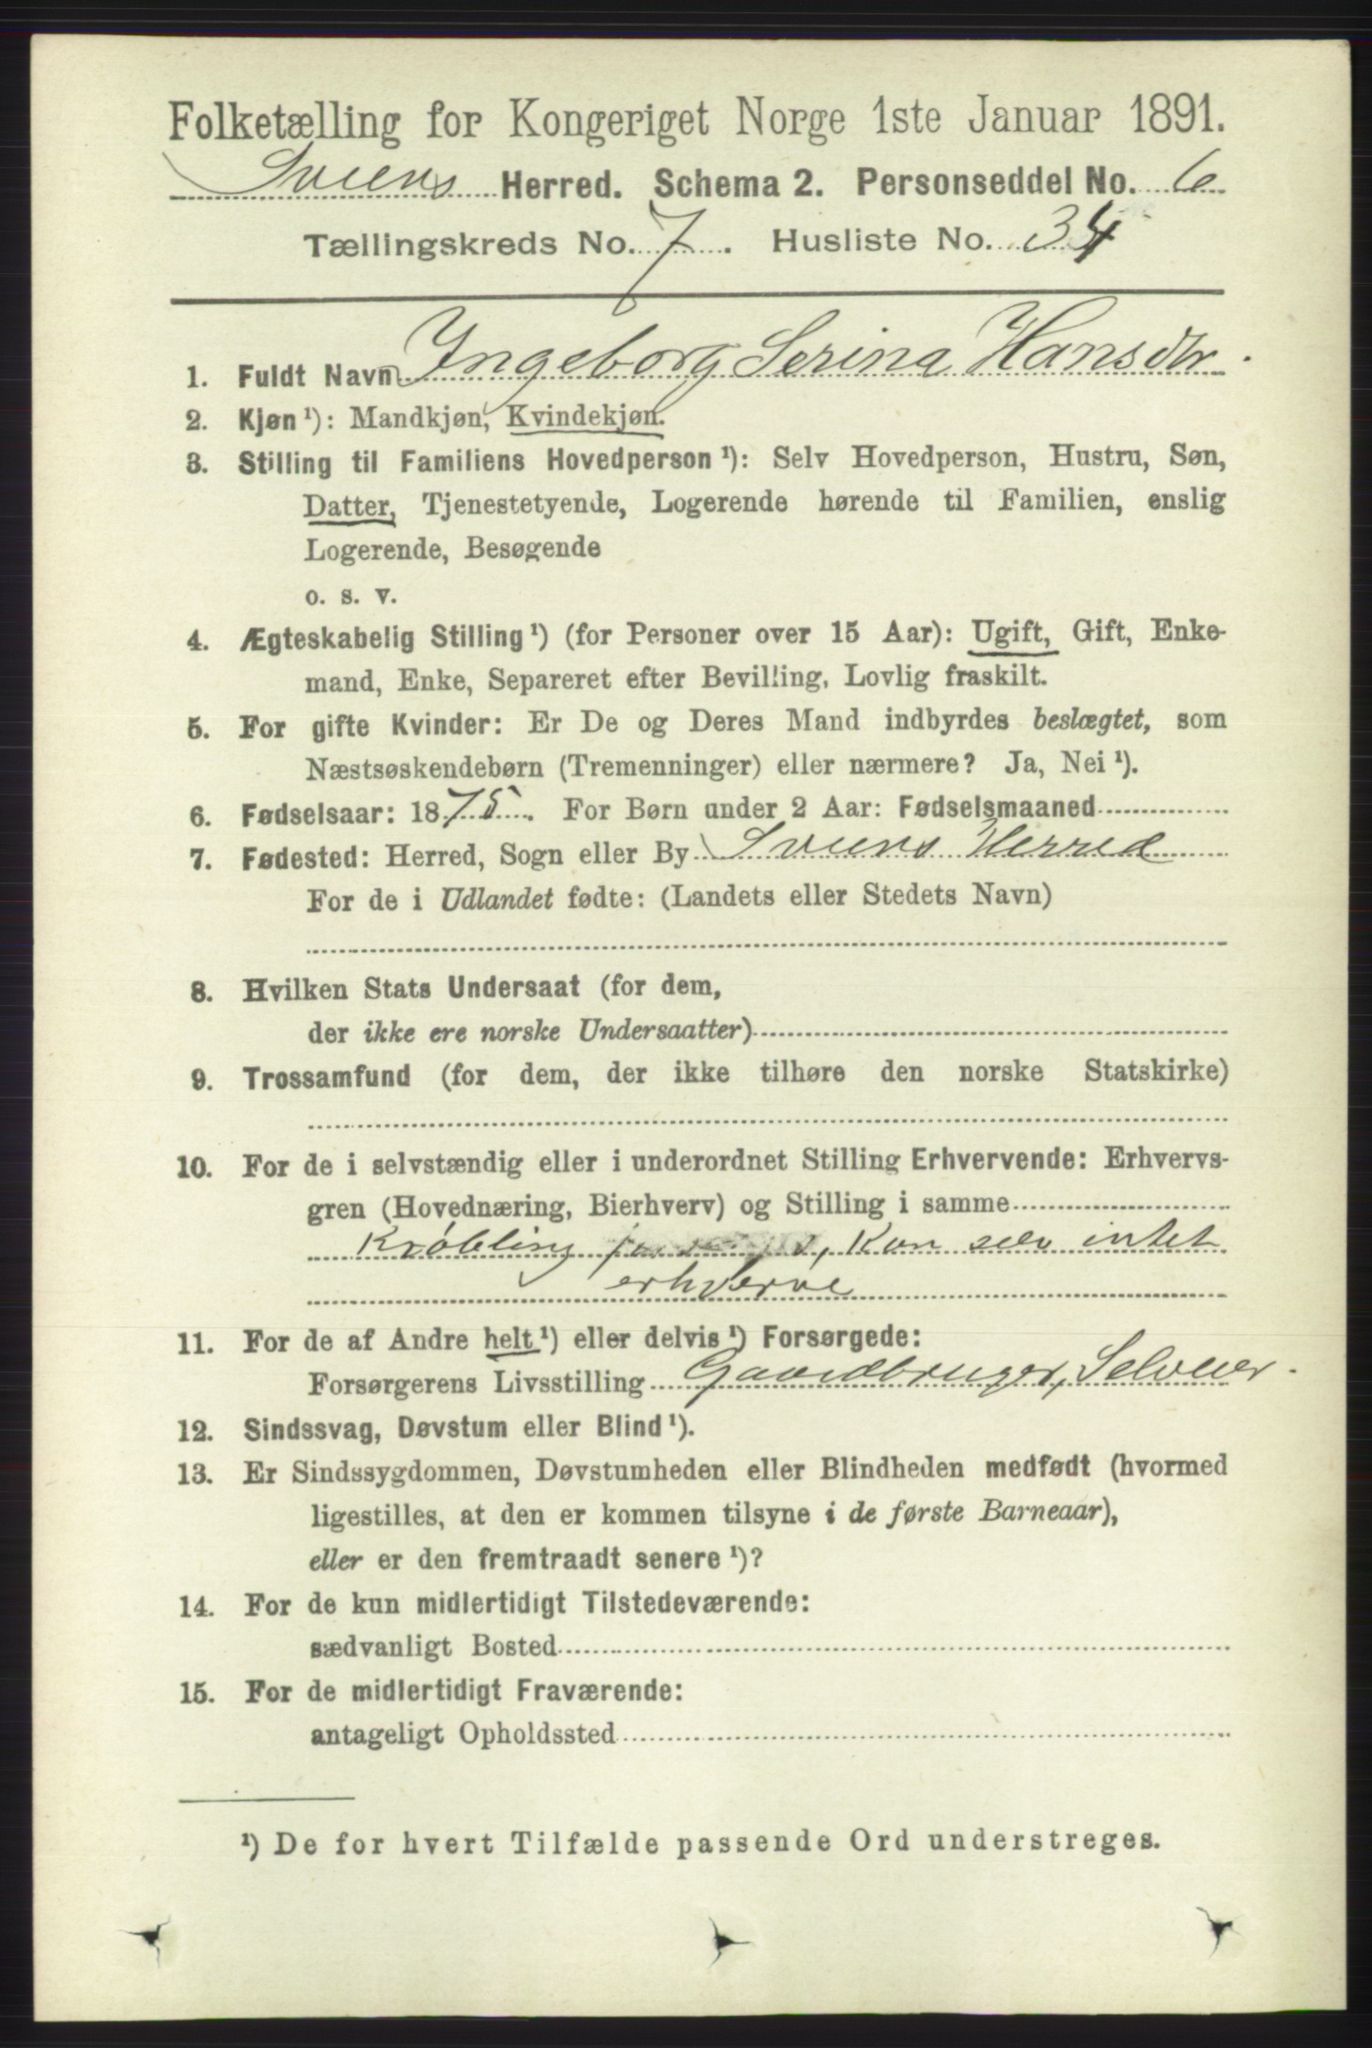 Folketælling for Kongeriget Norge 1ste Januar 1891.
Sveens Herred. Schema 2. Personseddel No. 6
Tællingskreds No. 7. Husliste No. 34
1. Fuldt Navn Ingeborg Serina Hansdtr.
2. Kjøn ¹): Mandkjøn, Kvindekjøn.
3. Stilling til Familiens Hovedperson ¹): Selv Hovedperson, Hustru, Søn,
Datter, Tjenestetyende, Logerende hørende til Familien, enslig
Logerende, Besøgende
o. s. v.
4. Ægteskabelig Stilling ¹) (for Personer over 15 Aar): Ugift, Gift, Enke-
mand, Enke, Separeret efter Bevilling, Lovlig fraskilt.
5. For gifte Kvinder: Er De og Deres Mand indbyrdes beslægtet, som
Næstsøskendebørn (Tremenninger) eller nærmere? Ja, Nei ¹).
6. Fødselsaar: 1875. For Børn under 2 Aar: Fødselsmaaned
7. Fødested: Herred, Sogn eller By Sveens Herred
For de i Udlandet fødte: (Landets eller Stedets Navn)
8. Hvilken Stats Undersaat (for dem,
der ikke ere norske Undersaatter)
9. Trossamfund (for dem, der ikke tilhøre den norske Statskirke)
10. For de i selvstændig eller i underordnet Stilling Erhvervende: Erhvervs-
gren (Hovednæring, Bierhverv) og Stilling i samme
Krøbling, Kan selv intet
erhverve
11. For de af Andre helt ¹) eller delvis ¹) Forsørgede:
Forsørgerens Livsstilling Gaardbruger, Selveier.
12. Sindssvag, Døvstum eller Blind ¹).
13. Er Sindssygdommen, Døvstumheden eller Blindheden medfødt (hvormed
ligestilles, at den er kommen tilsyne i de første Barneaar),
eller er den fremtraadt senere ¹)?
14. For de kun midlertidigt Tilstedeværende:
sædvanligt Bosted
15. For de midlertidigt Fraværende:
antageligt Opholdssted
¹) De for hvert Tilfælde passende Ord understreges.